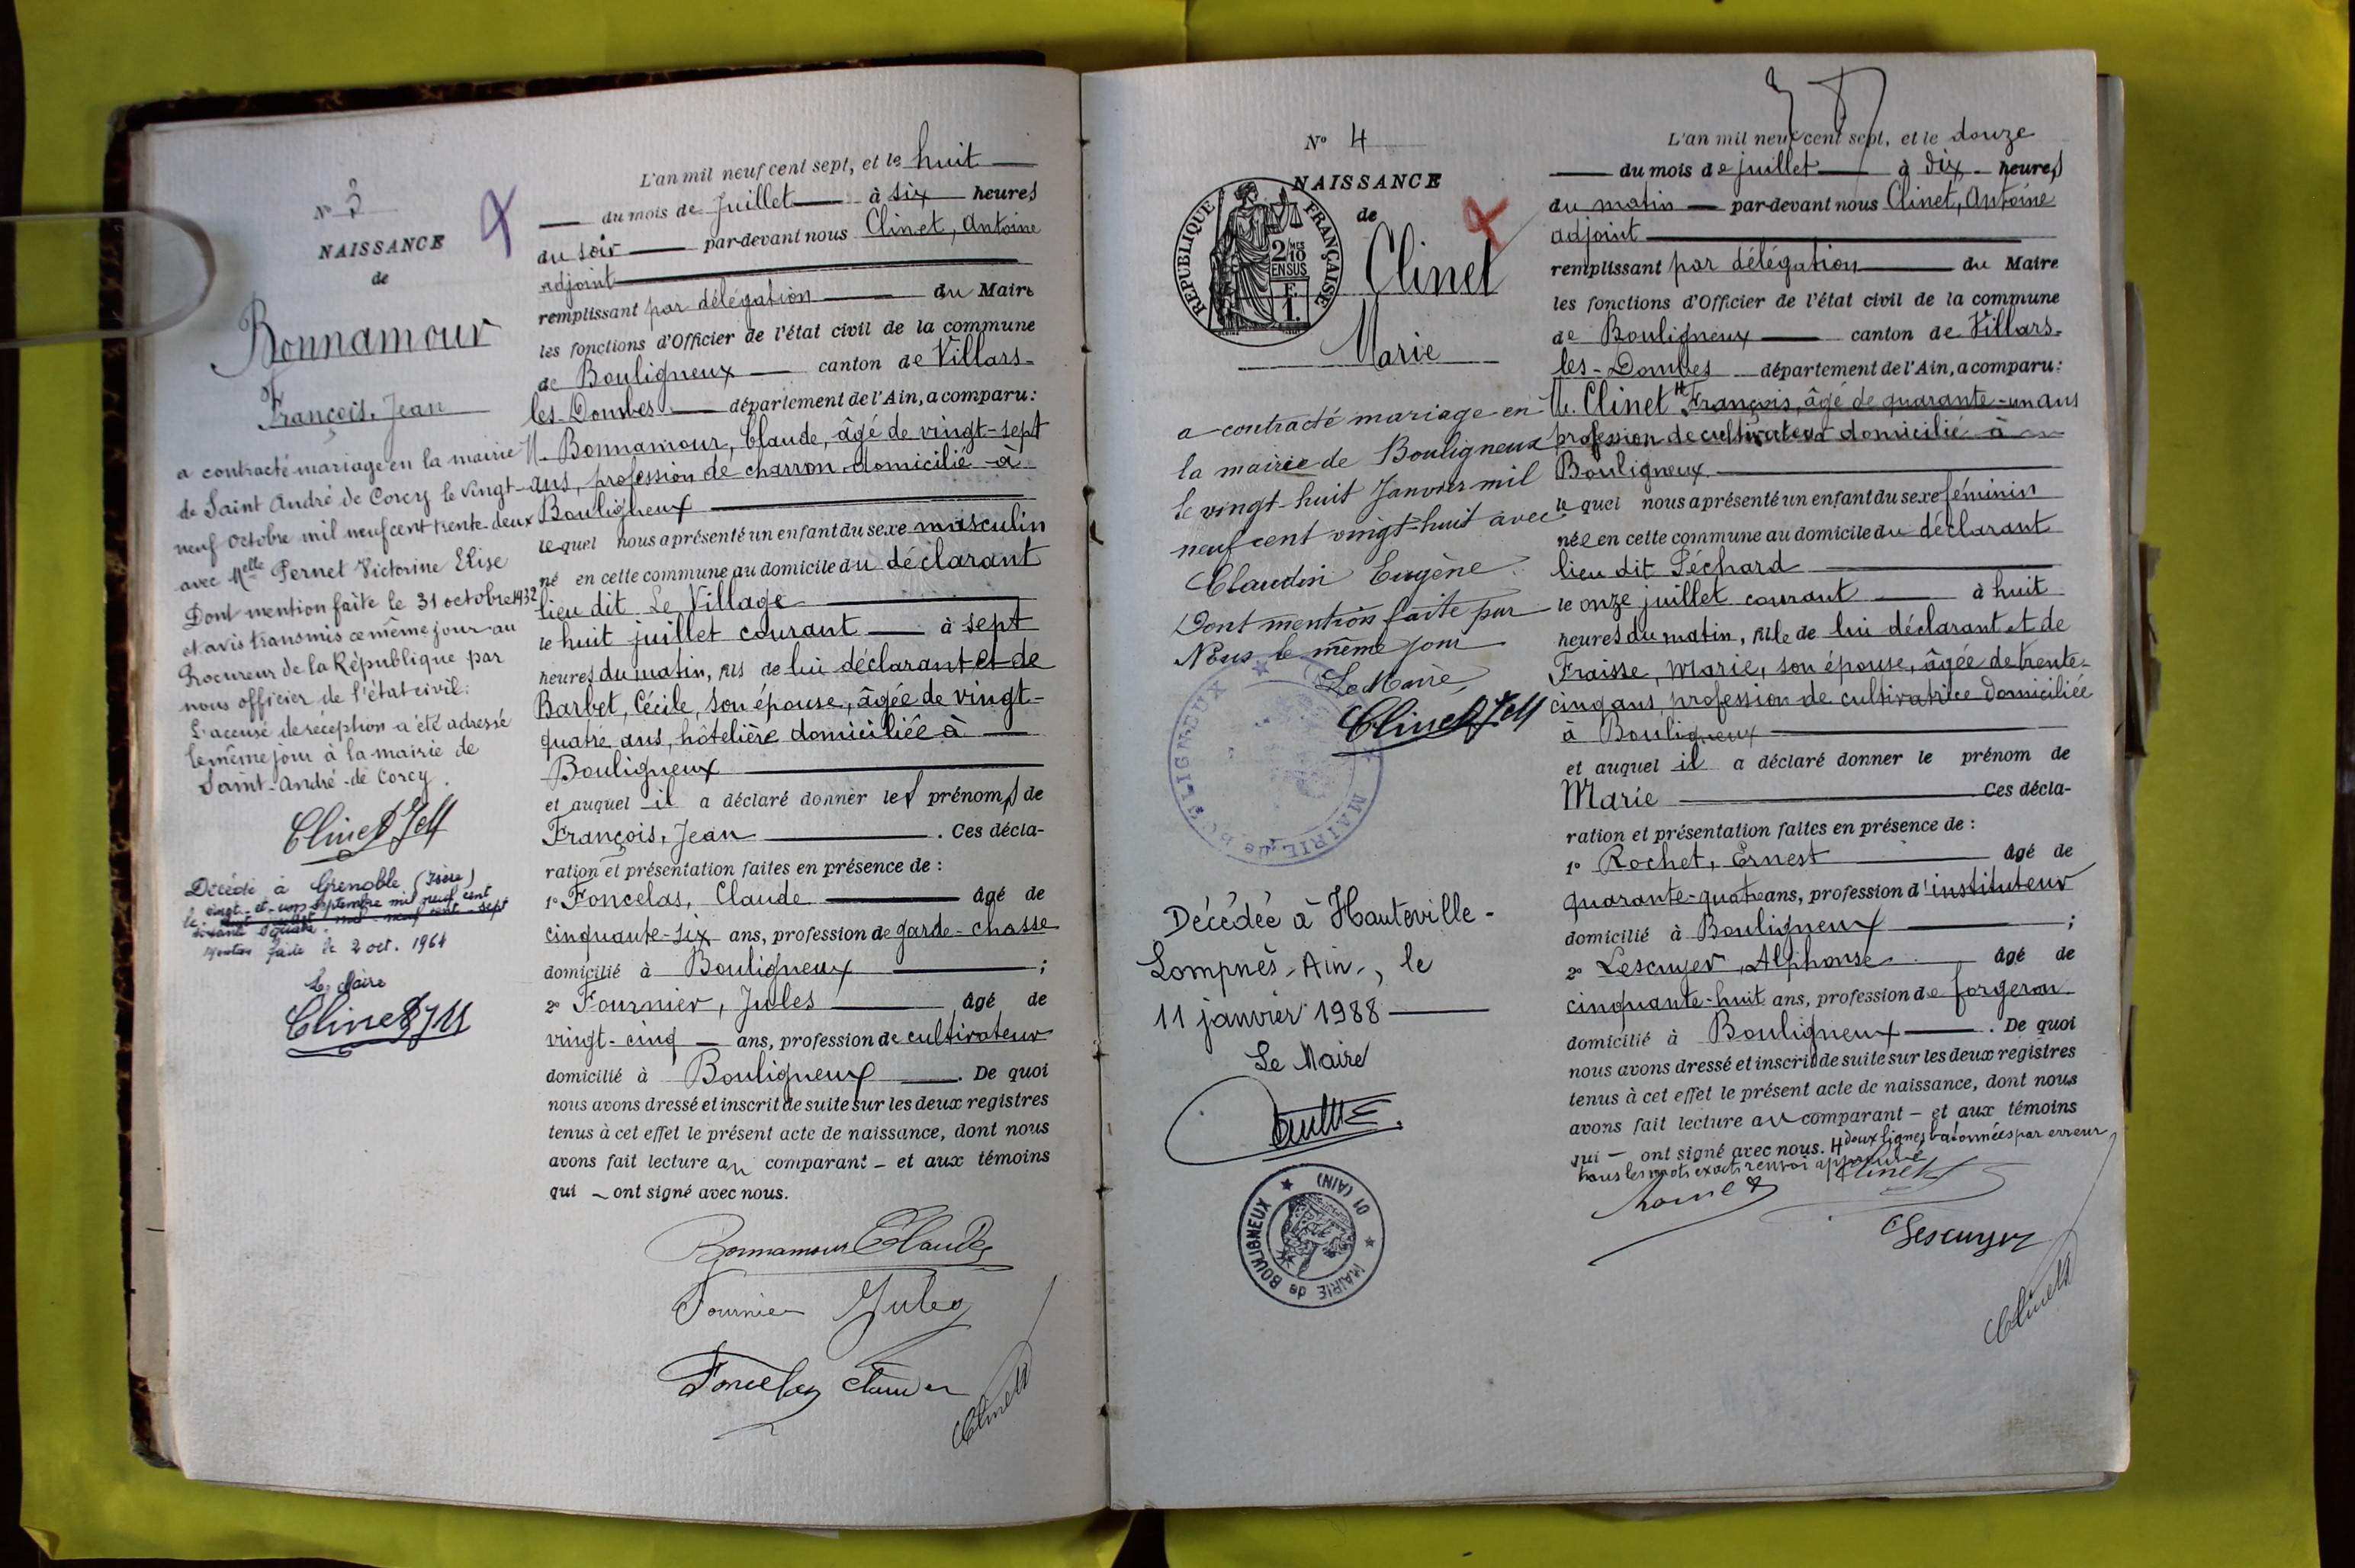 Nº 3
NAISSANCE
de
Bonnamour
François, Jean
a contracté mariage en la mairie
de Saint André de Corcy le vingt-
neuf Octobre mil neuf cent trente-deux
avec Melle Pernet Victorine Elise
Dont mention faite le 31 octobre 1932
et avis transmis ce même jour au
Procureur de la République par
nous officier de l'état civil:
L'accusé de réception a été adressé
le même jour à la mairie de
Saint-André-de Corcy.
Décédé à Grenoble (Isère)
le vingt-et-un septembre mil neuf cent
soixante quatre.
faite le 2 oct. 1964
Le Maire
L'an mil neuf cent sept, et le huit
du mois de Juillet à six heures
du soir par-devant nous Clinet, Antoine
adjoint
remplissant par délégation du Maire
les fonctions d'Officier de l'état civil de la commune
de Bouligneux canton de Villars-
les-Dombes département de l'Ain, a comparu:
M. Bonnamour, Claude, âgé de vingt-sept
ans, profession de charron domicilié à
Bouligneux
lequel nous a présenté un enfant du sexe masculin
né en cette commune au domicile du déclarant
lieu dit Le Village
le huit juillet courant à sept
heures du matin, fils de lui déclarant et de
Barbet, Cécile, son épouse, âgée de vingt-
quatre ans, hôtelière domiciliée à
Bouligneux
et auquel il a déclaré donner les prénoms de
François, Jean . Ces décla-
ration et présentation faites en présence de :
1º Foncelas, Claude âgé de
cinquante-six ans, profession de garde-chasse
domicilié à Bouligneux ;
2º Fournier, Jules âgé de
vingt-cinq ans, profession de cultivateur
domicilié à Bouligneux . De quoi
nous avons dressé et inscrit de suite sur les deux registres
tenus à cet effet le présent acte de naissance, dont nous
avons fait lecture au comparant - et aux témoins
qui - ont signé avec nous.
Bonnamour Claude
Fournier Jules
Foncelas Claude
Clinet
Nº 4
NAISSANCE
de
REPUBLIQUE FRANÇAISE
2/10 MES
EN SUS
Clinet
Marie
a contracté mariage en
la mairie de Bouligneux
le vingt-huit Janvier mil
neuf cent vingt-huit avec
Claudin Eugène.
Dont mention faite par
Nous le même jour
Le Maire,
MAIRIE de BOULIGNEUX
Décédée à Hauteville-
Lompnès-Ain-, le
11 janvier 1988
Le Maire
MAIRIE de BOULIGNEUX 01 (AIN)
L'an mil neuf cent sept, et le douze
du mois de juillet à dix heures
du matin par-devant nous Clinet, Antoine
adjoint
remplissant par délégation du Maire
les fonctions d'Officier de l'état civil de la commune
de Bouligneux canton de Villars-
les-Dombes département de l'Ain, a comparu:
M. Clinet François, âgé de quarante-un ans
profession de cultivateur domicilié à
Bouligneux
lequel nous a présenté un enfant du sexe féminin
née en cette commune au domicile du déclarant
lieu dit Péchard
le onze juillet courant à huit
heures du matin, fille de lui déclarant et de
Fraisse, Marie, son épouse, âgée de trente-
cinq ans, profession de cultivatrice domiciliée
à Bouligneux
et auquel il a déclaré donner le prénom de
Marie Ces décla-
ration et présentation faites en présence de :
1º Rochet, Ernest âgé de
quarante-quatre ans, profession d'instituteur
domicilié à Bouligneux ;
2º Lescuyer, Alphonse âgé de
cinquante-huit ans, profession de forgeron
domicilié à Bouligneux . De quoi
nous avons dressé et inscrit de suite sur les deux registres
tenus à cet effet le présent acte de naissance, dont nous
avons fait lecture au comparant - et aux témoins
qui - ont signé avec nous. H deux lignes batonnées par erreur
tous les mots exacts renvoi approuvé
Clinet
Lescuyer
Clinet